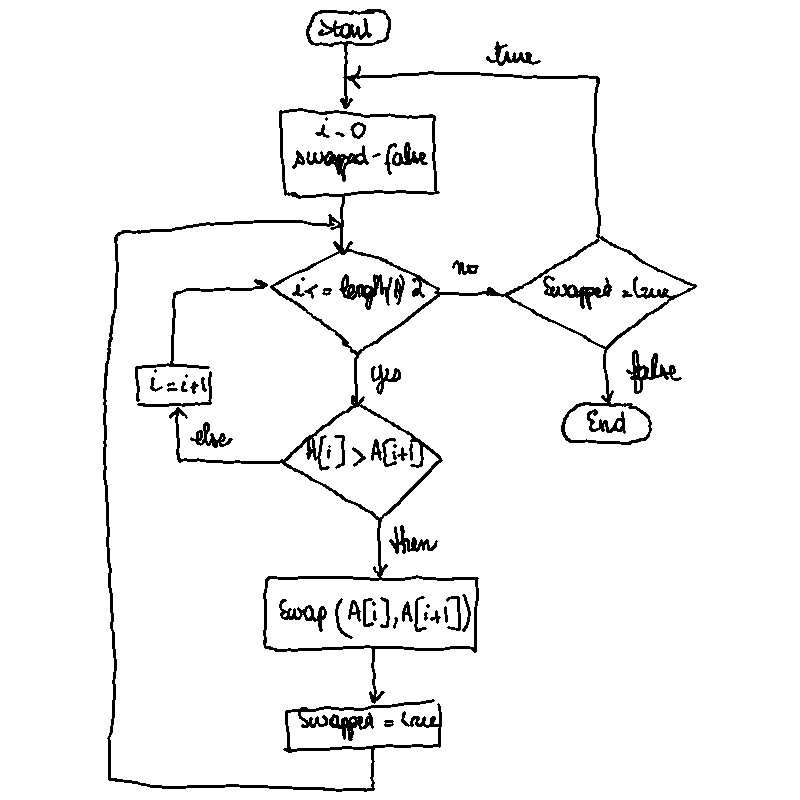 Start
true
i - 0
swaped - false
i <= length(A) 2
no
Swapped = true
yes
false
End
i = i+1
else
A[i] > A[i+1]
then
Swap (A[i], A[i+1])
Swapped = true